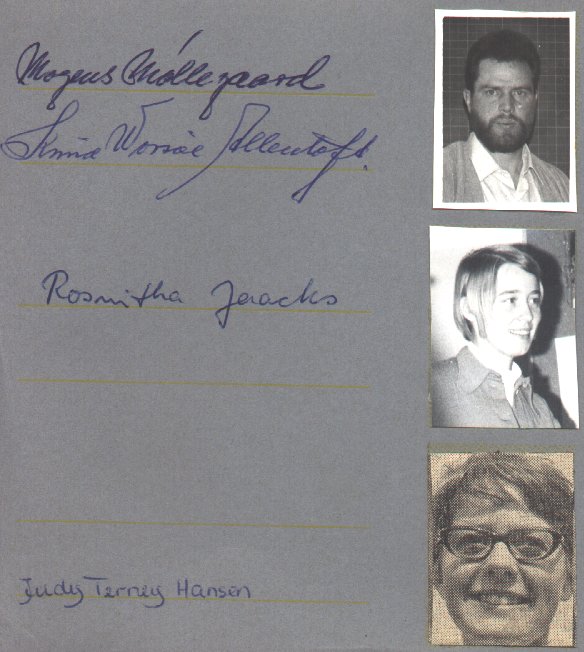 Mogens Møllegaard
Worsåe Allentoft.
Rosvitha Jaacks
Judy Terney Hansen